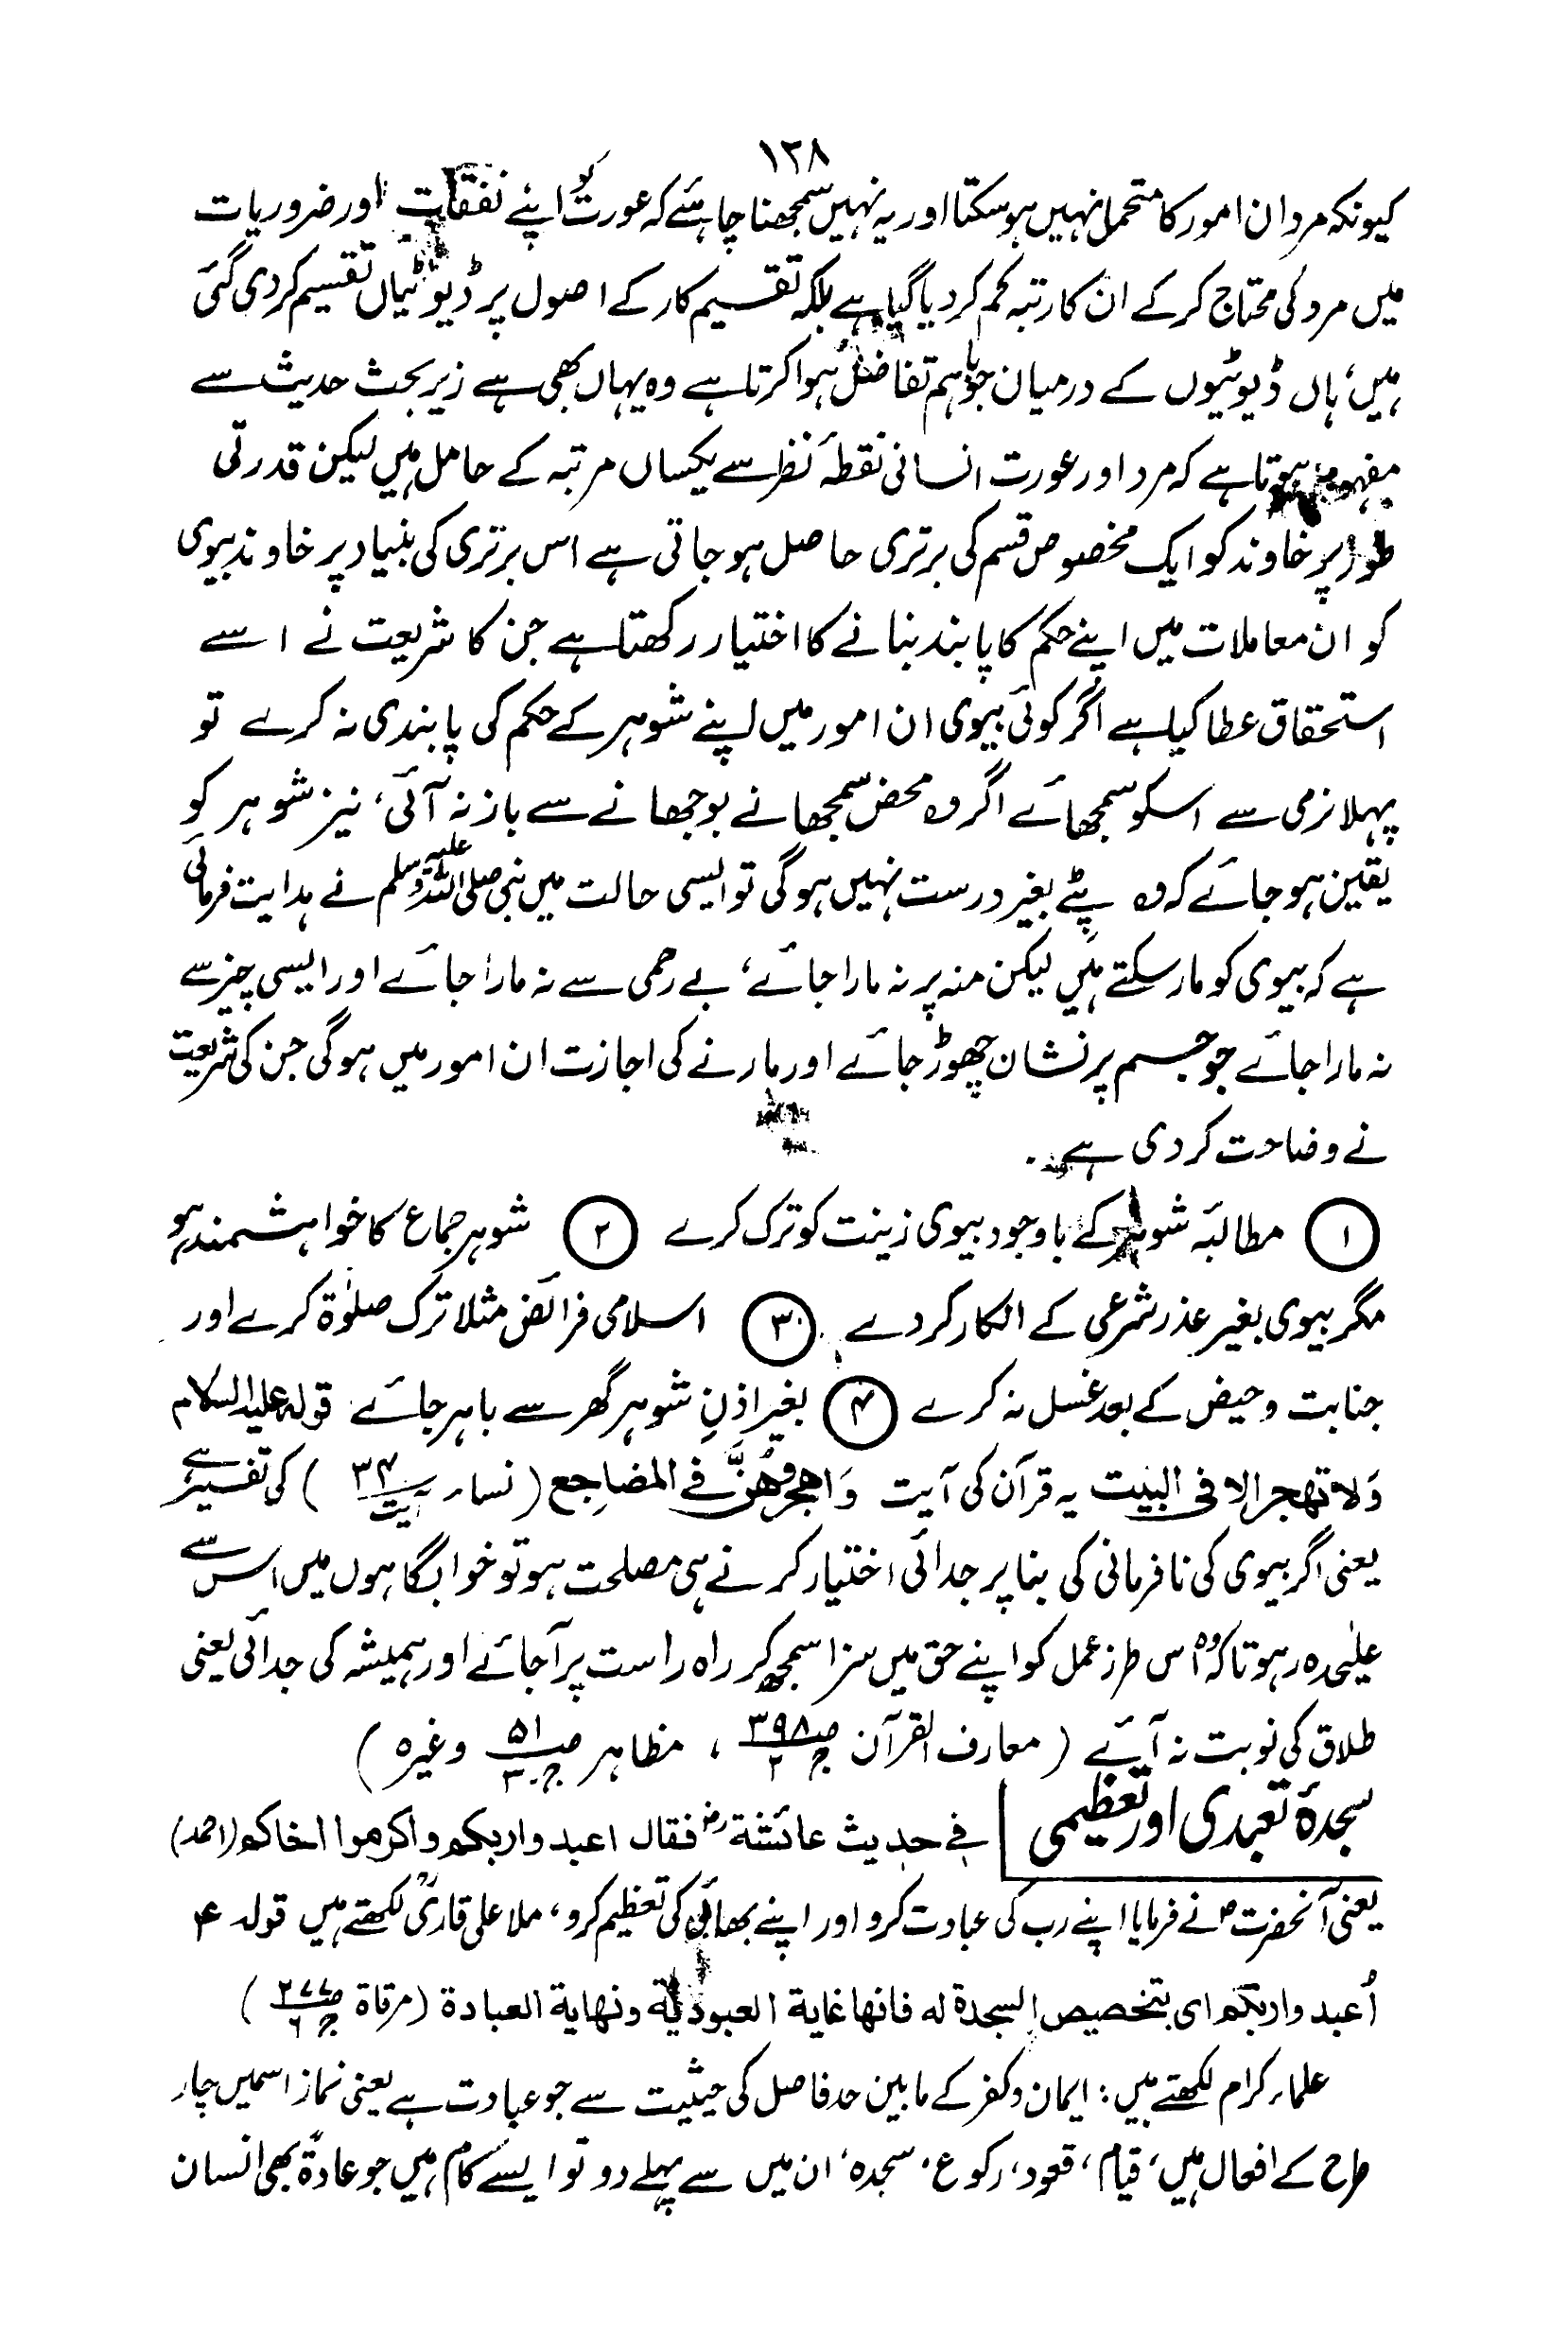 ۱۲۸
کیونکہ مرد ان امور کا متحمل نہیں ہو سکتا اور یہ نہیں سمجھنا چاہئے کہ عورت کو اپنے نفقات اور ضروریات
میں مرد کی محتاج کر کے ان کا رتبہ کم کر دیا گیا ہے بلکہ تقسیم کار کے اصول پر ڈیوٹیاں تقسیم کر دی گئی
ہیں، ہاں ڈیوٹیوں کے درمیان جو باہم تفاضل ہوا کرتا ہے وہ یہاں بھی ہے زیر بحث حدیث سے
مفہوم ہوتا ہے کہ مرد اور عورت انسانی نقطۂ نظر سے یکساں مرتبہ کے حامل ہیں لیکن قدرتی
طور پر خاوند کو ایک مخصوص قسم کی برتری حاصل ہو جاتی ہے اس برتری کی بنیاد پر خاوند بیوی
کو ان معاملات میں اپنے حکم کا پابند بنانے کا اختیار رکھتا ہے جن کا شریعت نے اسے
استحقاق عطا کیا ہے اگر کوئی بیوی ان امور میں اپنے شوہر کے حکم کی پابندی نہ کرے تو
پہلا نرمی سے اسکو سمجھائے اگر وہ محض سمجھانے بوجھانے سے باز نہ آئی، نیز شوہر کو
یقین ہو جائے کہ وہ پٹے بغیر درست نہیں ہوگی تو ایسی حالت میں نبی صلی اللہ علیہ وسلم نے ہدایت فرمائی
ہے کہ بیوی کو مار سکتے ہیں لیکن منہ پر نہ مارا جائے، بے رحمی سے نہ مارا جائے اور ایسی چیز سے
نہ مارا جائے جو جسم پر نشان چھوڑ جائے اور مارنے کی اجازت ان امور میں ہوگی جن کی شریعت
نے وضاحت کر دی ہے۔
① مطالبۂ شوہر کے باوجود بیوی زینت کو ترک کرے ② شوہر جماع کا خواہشمند ہو
مگر بیوی بغیر عذر شرعی کے انکار کر دے ③ اسلامی فرائض مثلا ترک صلوٰۃ کرے اور
جنابت و حیض کے بعد غسل نہ کرے ④ بغیر اذنِ شوہر گھر سے باہر جائے قولہ علیہ السلام
وَلا تهجر الا فی البَیت یہ قرآن کی آیت وَاهجروهُنَّ فی المضاجع (نساء آیت ۳۴) کی تفسیر ہے
یعنی اگر بیوی کی نافرمانی کی بنا پر جدائی اختیار کرنے ہی مصلحت ہو تو خوابگاہوں میں اس سے
علیٰحدہ رہو تاکہ وہ اس طرز عمل کو اپنے حق میں سزا سمجھ کر راہ راست پر آجائے اور ہمیشہ کی جدائی یعنی
طلاق کی نوبت نہ آئے (معارف القرآن ص۳۹۸ ج۲، مظاہر ص۵۱ ج۳ وغیرہ)
سجدۂ تعبدی اور تعظیمی | فی حدیث عائشۃ رض فقال اعبدوا ربکم واکرموا اخاکم (احمد)
یعنی آنحضرت ص نے فرمایا اپنے رب کی عبادت کرو اور اپنے بھائی کی تعظیم کرو، ملا علی قاریؒ لکھتے ہیں قولہ ع
اُعبدوا ربکم ای بتخصیص السجدۃ له فانها غایة العبودیة ونهایة العبادة (مرقاة ص۲۷۷ ج۶)
علماء کرام لکھتے ہیں: ایمان و کفر کے مابین حد فاصل کی حیثیت سے جو عبادت ہے یعنی نماز اسمیں چار
طرح کے افعال ہیں، قیام، قعود، رکوع، سجدہ، ان میں سے پہلے دو تو ایسے کام ہیں جو عادۃً بھی انسان